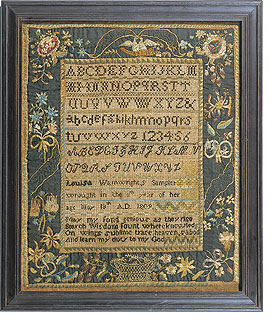 ABCDEFGHIJKLM
NOPQRSTT
UVWXYZ&
abcdefghiklmnopqrs
tuvwxyz 123456
ABCDEFGHIJKLMN
OPQRSTUVWXYZ
Louisa Wainwright's Sampler
wrought in the year of her
age May 18th A.D. 1809
May my fond genious as they rise
Search Wisdom fount where knowledge
On wings sublime trace heaven abode
and learn my duty to my God